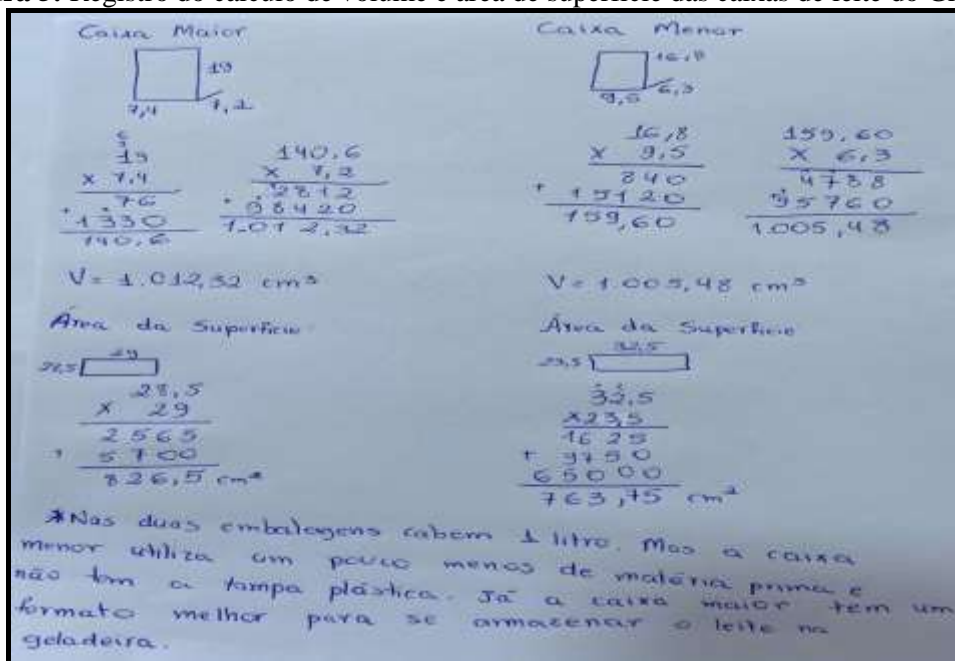 Caixa Maior
19
7,4 7,2
19
x 7,4
76
+ 1330
140,6
140,6
x 7,2
2812
+ 98420
1.012,32
V = 1.012,32 cm³
Área da Superfície
29
28,5
28,5
x 29
2565
+ 5700
826,5 cm²
Caixa Menor
16,8
9,5 6,3
16,8
x 9,5
840
+ 15120
159,60
159,60
x 6,3
4788
95760
1.005,48
V = 1.005,48 cm³
Área da Superfície
32,5
23,5
32,5
x 23,5
1625
+ 9750
65000
763,75 cm²
*Nas duas embalagens cabem 1 litro. Mas a caixa
menor utiliza um pouco menos de matéria prima e
não tem a tampa plástica. Já a caixa maior tem um
formato melhor para se armazenar o leite na
geladeira.